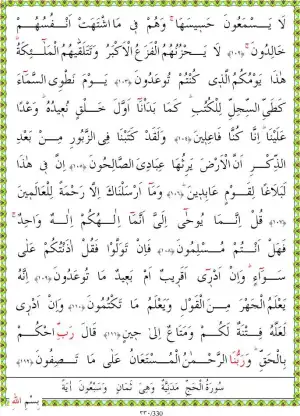 لَا يَسْمَعُونَ حَسِيسَهَا ۖ وَهُمْ فِى مَا اشْتَهَتْ اَنْفُسُهُمْ
خَالِدُونَ ﴿١٠٢﴾ لَا يَحْزُنُهُمُ الْفَزَعُ الْاَكْبَرُ وَتَتَلَقّٰيهُمُ الْمَلٰٓئِكَةُ ۜ
هٰذَا يَوْمُكُمُ الَّذٖى كُنْتُمْ تُوعَدُونَ ﴿١٠٣﴾ يَوْمَ نَطْوِى السَّمَٓاءَ
كَطَىِّ السِّجِلِّ لِلْكُتُبِ ۜ كَمَا بَدَاْنَٓا اَوَّلَ خَلْقٍ نُعٖيدُهُ ۜ وَعْدًا
عَلَيْنَا ۜ اِنَّا كُنَّا فَاعِلٖينَ ﴿١٠٤﴾ وَلَقَدْ كَتَبْنَا فِى الزَّبُورِ مِنْ بَعْدِ
الذِّكْرِ اَنَّ الْاَرْضَ يَرِثُهَا عِبَادِىَ الصَّالِحُونَ ﴿١٠٥﴾ اِنَّ فٖى هٰذَا
لَبَلَاغًا لِقَوْمٍ عَابِدٖينَ ﴿١٠٦﴾ وَمَٓا اَرْسَلْنَاكَ اِلَّا رَحْمَةً لِلْعَالَمٖينَ
﴿١٠٧﴾ قُلْ اِنَّمَا يُوحٰٓى اِلَىَّ اَنَّمَٓا اِلٰهُكُمْ اِلٰهٌ وَاحِدٌ ۚ
فَهَلْ اَنْتُمْ مُسْلِمُونَ ﴿١٠٨﴾ فَاِنْ تَوَلَّوْا فَقُلْ اٰذَنْتُكُمْ عَلٰى
سَوَٓاءٍ ۜ وَاِنْ اَدْرٖٓى اَقَرٖيبٌ اَمْ بَعٖيدٌ مَا تُوعَدُونَ ﴿١٠٩﴾ اِنَّهُ
يَعْلَمُ الْجَهْرَ مِنَ الْقَوْلِ وَيَعْلَمُ مَا تَكْتُمُونَ ﴿١١٠﴾ وَاِنْ اَدْرٖى
لَعَلَّهُ فِتْنَةٌ لَكُمْ وَمَتَاعٌ اِلٰى حٖينٍ ﴿١١١﴾ قَالَ رَبِّ احْكُمْ
بِالْحَقِّ ۜ وَرَبُّنَا الرَّحْمٰنُ الْمُسْتَعَانُ عَلٰى مَا تَصِفُونَ ﴿١١٢﴾
سُورَةُ الْحَجِّ مَدَنِيَّةٌ وَهِىَ ثَمَانٍ وَسَبْعُونَ اٰيَةً
بِسْمِ اللّٰهِ
٣٣٠/330